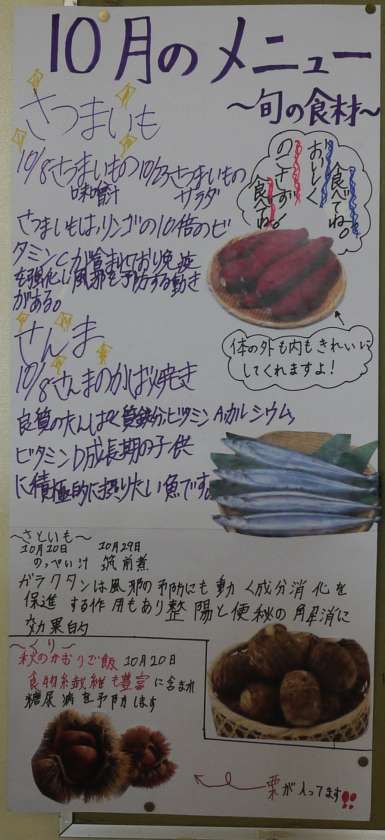 10月のメニュー
〜旬の食材〜
さつまいも
10/8さつまいもの味噌汁
10/23さつまいものサラダ
さつまいもは、リンゴの10倍のビ
タミンCが含まれており免疫
を強化し風邪を予防する動き
がある。
おいしく
食べてね。
のこさず
食べてね。
体の外も内もきれいに
してくれますよ!
さんま
10/8さんまのかば焼き
良質のたんぱく質鉄分、ビタミンA、カルシウム、
ビタミンD成長期の子供
に積極的に摂りたい魚です。
〜さといも〜
10月10日 10月29日
のっぺい汁 筑前煮
ガラクタンは風邪の予防にも動く成分消化を
保進する作用もあり整腸と便秘の解消に
効果的
〜くり〜
秋のかおりご飯 10月20日
食物繊維も豊富に含まれ
糖尿病を予防します
栗が入ってます!!